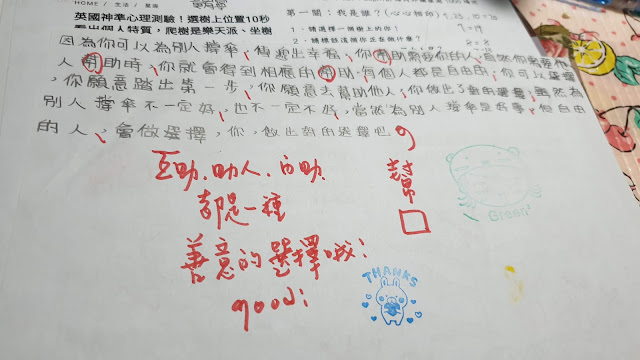 HOME / 生活 / 星座
英國神準心理測驗！選樹上位置10秒
看出個人特質，爬樹是樂天派、坐樹
第一關：我是誰？(心心相印)
1、請選擇一個樹上的你？
2、請標註這個你正在做什麼？
因為你可以為別人撐傘，傳遞出幸福，你幫助需要你的人，當然你需要他
人幫助時，你就會得到相應的幫助，每個人都是自由的，你可以選擇
，你願意踏出第一步，你願意去幫助他人，你做出了對的選擇，雖然為
別人撐傘不一定好，也不一定不好，當然為別人撐傘是好事，但自由
的人，會做選擇，你，做出對的選擇吧
互助、助人、自助
都是一種
善意的選擇哦！
good！
幫
Green
THANKS